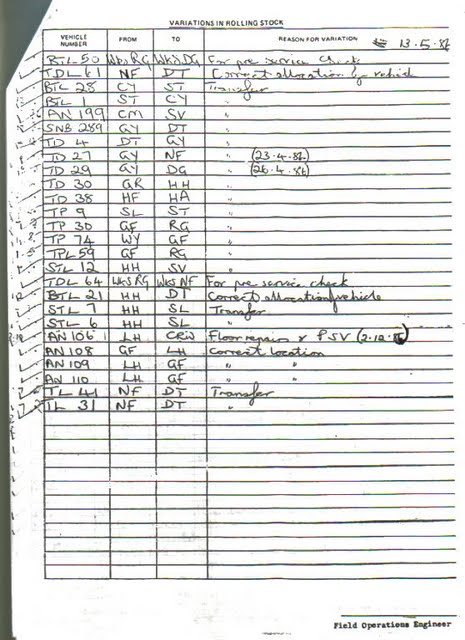 VARIATIONS IN ROLLING STOCK
VEHICLE NUMBER FROM TO REASON FOR VARIATION 13.5.86
BTL 50 Wks RG Wks DG For pre service check
TDL 61 NF DT Correct allocation of vehicle
BTC 28 CY ST Transfer
BTL 1 ST CY "
AN 199 CM SV "
SNB 289 GY DT "
TD 4 DT GY "
TD 27 GY NF " (23.4.86)
TD 29 GY DG " (26.4.86)
TD 30 GR HH "
TD 38 HF HA "
TP 9 SL ST "
TP 30 GF RG "
TP 74 WY GF "
TPL 59 GF RG "
STL 12 HH SV "
TDL 64 Wks RG Wks NF For pre service check
BTL 21 HH DT Correct allocation/vehicle
STL 7 HH SL Transfer
STL 6 HH SL "
AN 106 LH Floor repairs & PSV (2.12.86)
AN 108 GF LH Correct location
AN 109 LH GF " "
AN 110 LH GF " "
TL 41 NF DT Transfer
TL 31 NF DT "
Field Operations Engineer